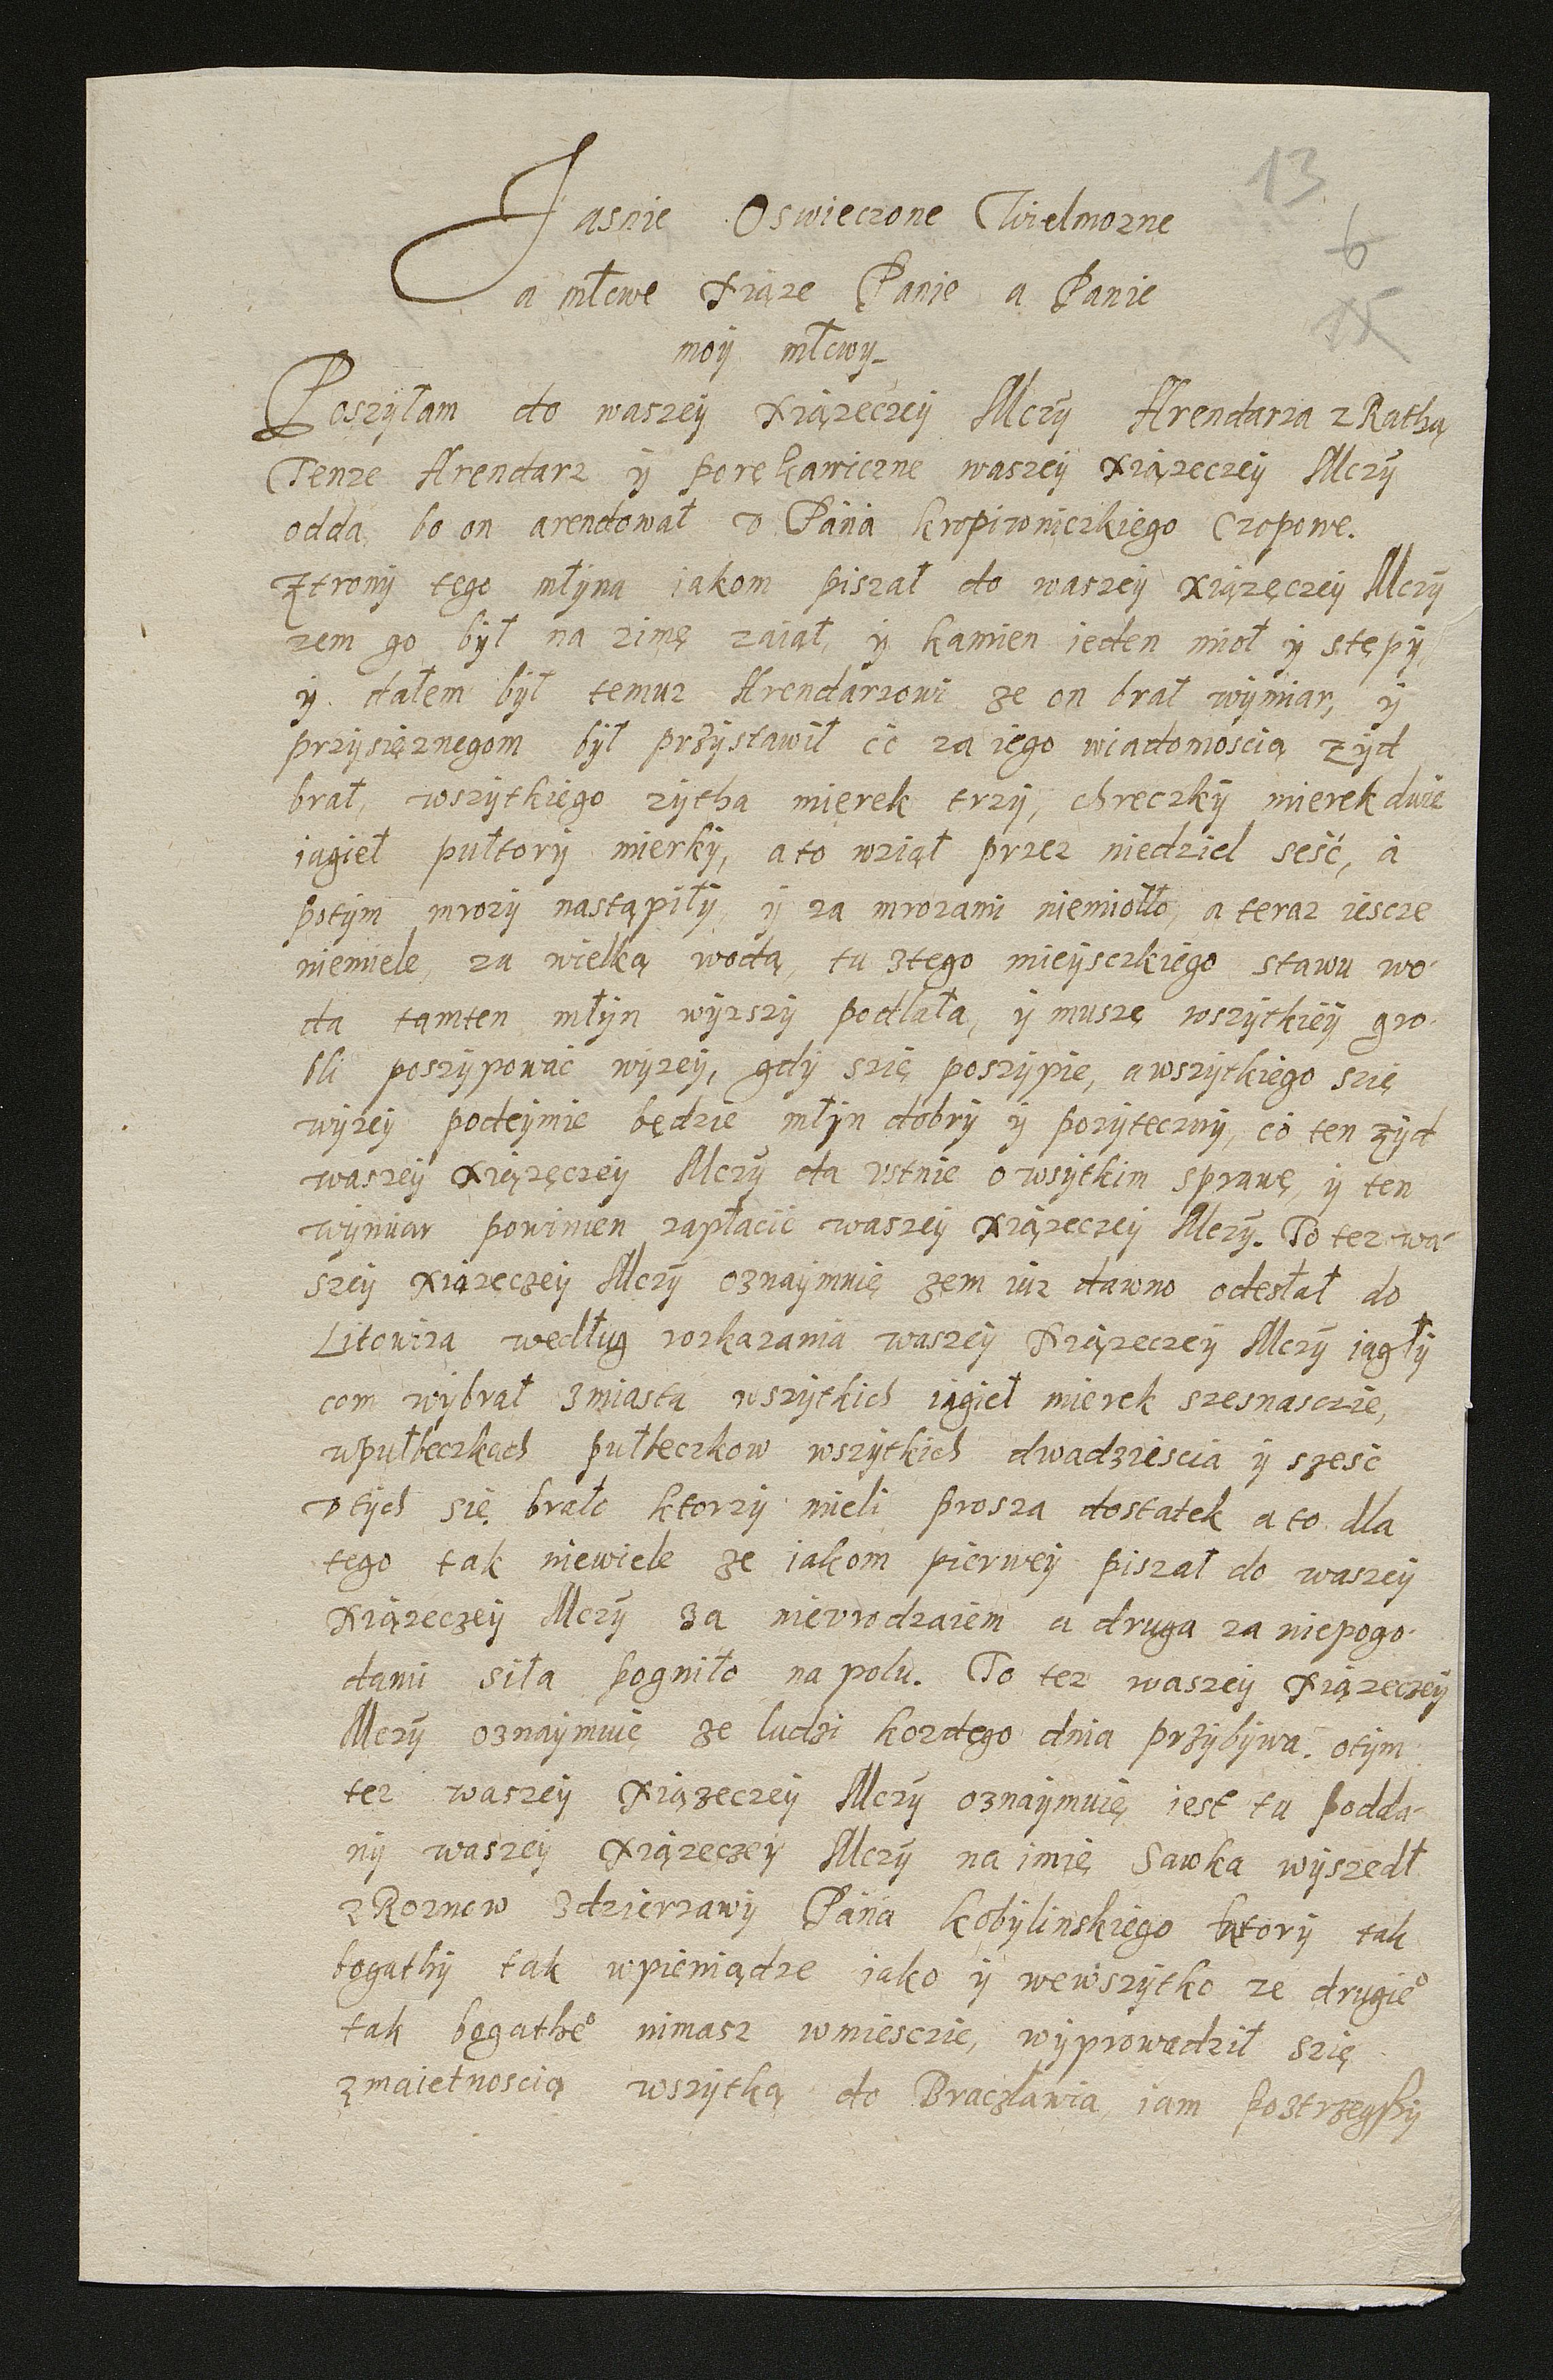 13
6
Jasnie Oswieczone Wielmozne
a młcwe Xiąze Panie a Panie
moy młcwy
Poszyłam do waszey Xiązeczey Mczy Arendarza z Rathą
Tenze Arendarz y porękawiczne waszey Xiązeczey Mczy
odda, bo on arendował v Pána kropiwniczkiego Czopowe.
Ztrony tego młyna iakom piszał do waszey Xiązęczey Mczy
zem go był na zimę zaiął, y kamien ieden mioł y stępy,
y dałem był temuz Arendarzowi ze on brał wymiar, y
przysięznegom był przystawił co za iego wiadomoscią zyd
brał, wszytkiego zytha mięrek trzy, chreczky mierek dwie
iagieł pułtory mierky, a to wziął przez niedziel sesć, á
potym mrozy nastąpiły, y za mrozami niemiołło, a teraz iescze
niemiele, za wielką wodą, tu ztego mieysczkiego stawu wo-
da tamten młyn wyzszy podlała, y muszę wszytkiey gro-
bli poszypowác wyzey, gdy szię poszypie, a wszytkiego szię
wyzey podeymie będzie młyn dobry y pozyteczny, co ten zyd
waszey Xiązęczey Mczy da vstnie o wsytkim sprawę, y ten
wymiar powinien zapłacic waszey Xiązeczey Mczy. To tez wa-
szey Xiązeczey Mczy oznaymuię zem iuz dawno odesłał do
Litowiza według rozkazania waszey Xiązeczey Mczy iagły
com wybrał zmiasta wszytkich iagieł mierek szesnasczie,
wpułbeczkach pułbeczkow wszytkich dwadziescia y szesc
v tych się brało ktorzy mieli prosza dostatek a to dla
tego tak niewiele ze iakom pierwey piszał do waszey
Xiązeczey Mczy za nievrodzaiem a druga za niepogo-
dami siła pogniło na polu. To tez waszey Xiązeczey
Mczy oznaymuię ze ludzi kozdego dnia przybywa. otym
tez waszey Xiązeczey Mczy oznaymuię iest tu podda-
ny waszey Xiązeczey Mczy na imię Sawka wyszedł
z Roznow zdzierzawy Pána kobylinskiego ktory tak
bogathy tak wpieniądze iako y wewszytko ze drugie°
tak bogathe° nimasz wmiesczie, wyprowadził szię
zmaietnoscią wszytką do Braczlawia iam